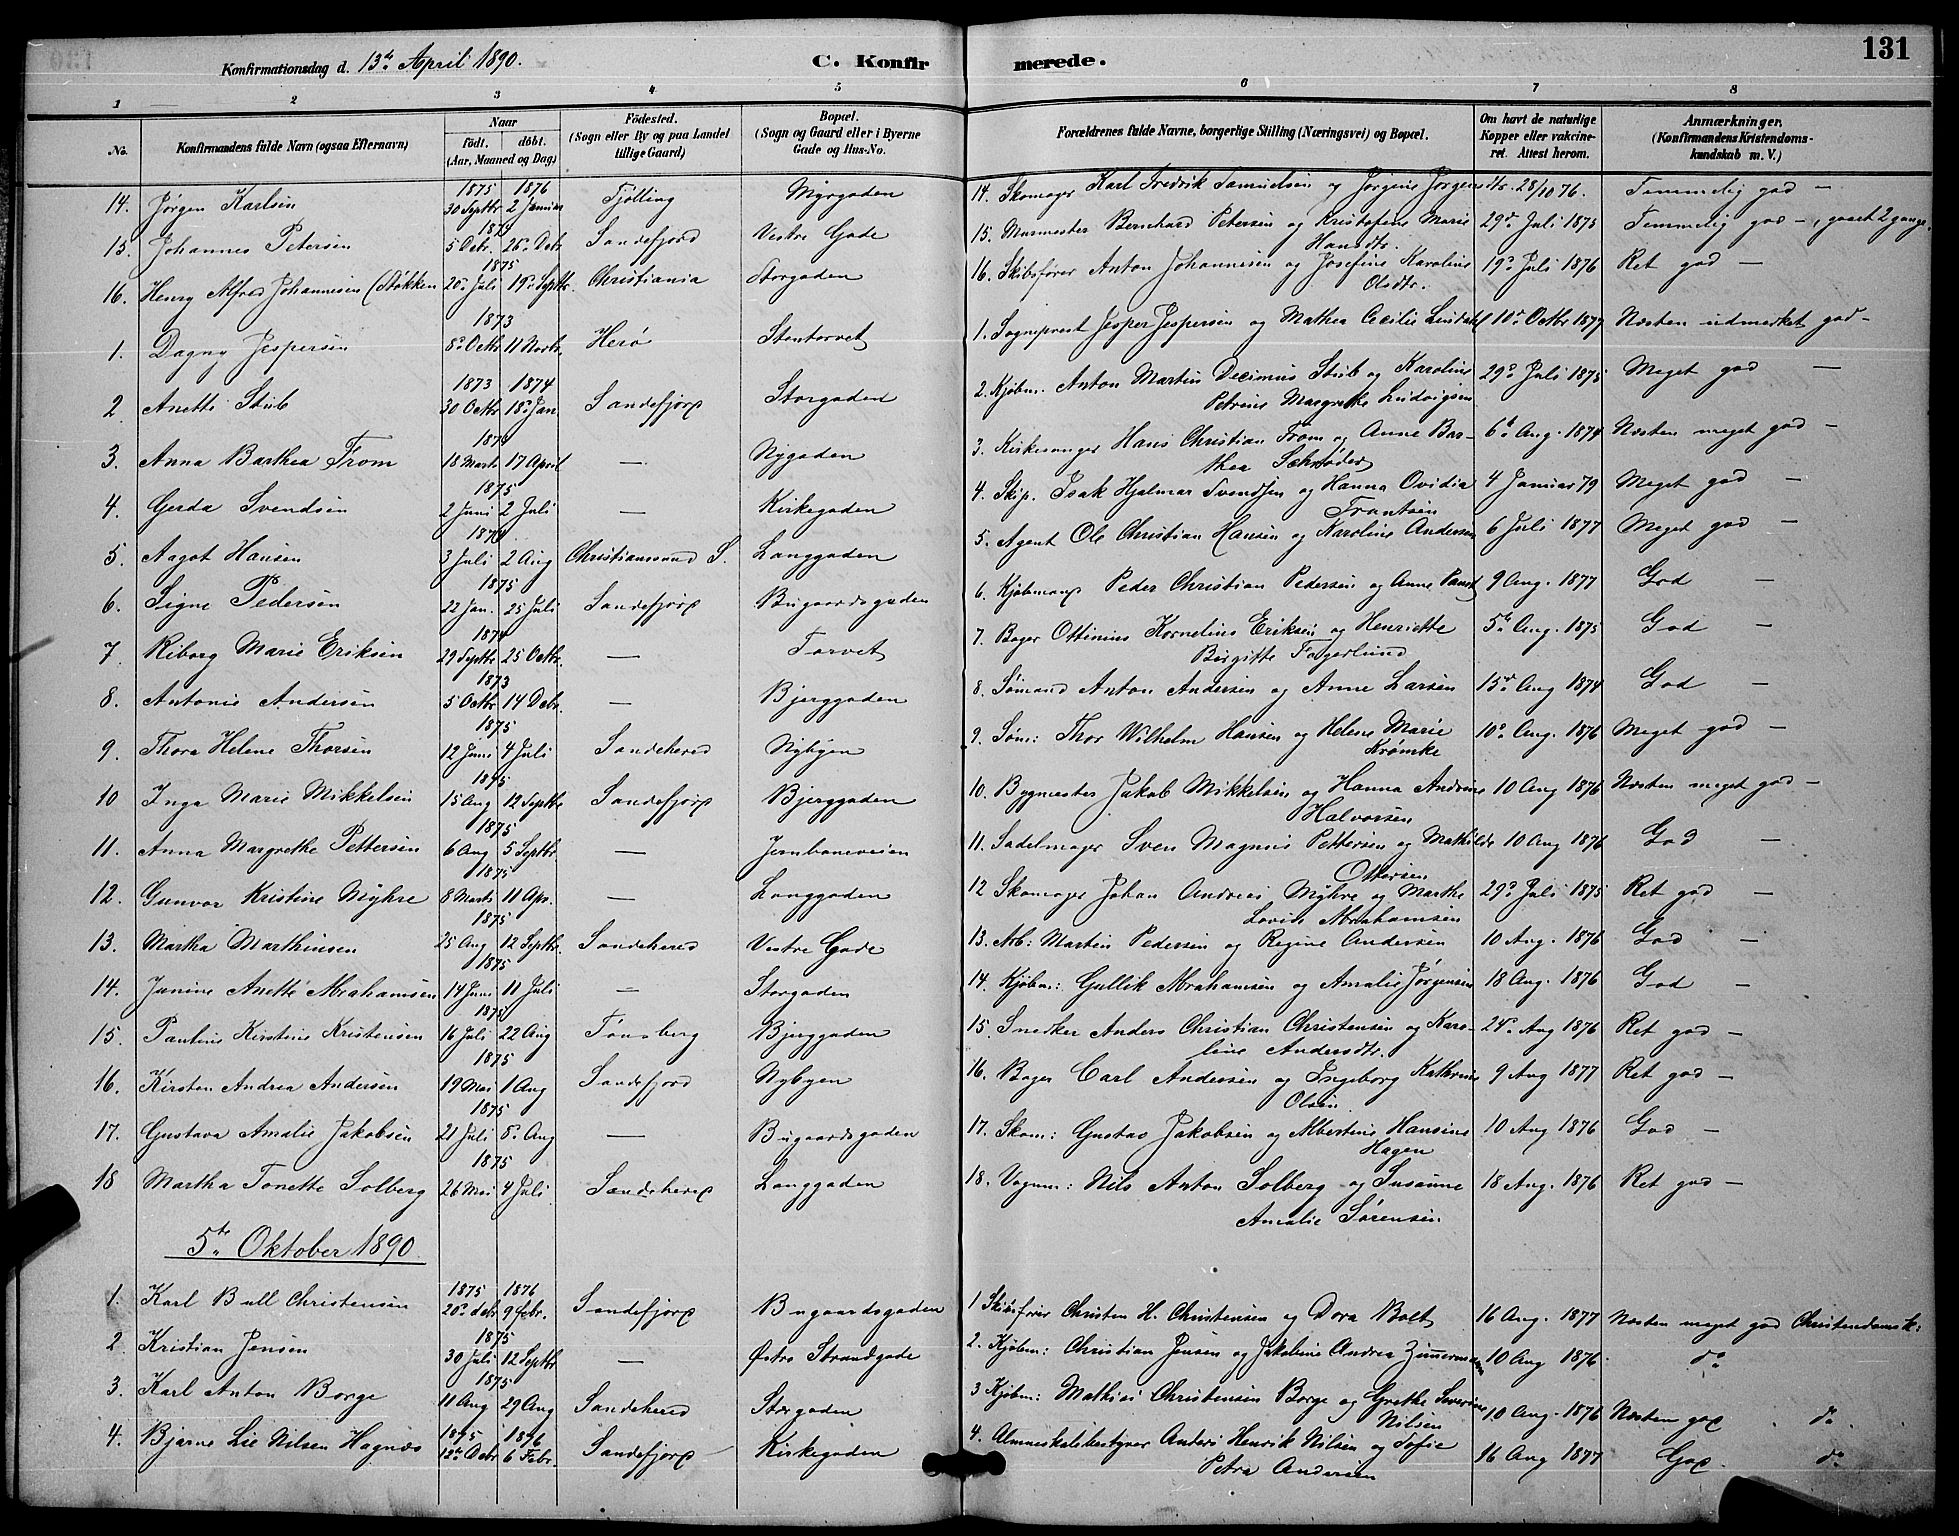 Konfirmationsdag d. 13de April 1890. C. Konfirmerede. 131
1 2 3 4 5 6 7 8
No. Konfirmandens fulde Navn (ogsaa Efternavn) Naar født. døbt. (Aar, Maaned og Dag) Födested. (Sogn eller By og paa Landet tillige Gaard) Bopæl. (Sogn og Gaard eller i Byerne Gade og Hus-No. Forældrenes fulde Navne, borgerlige Stilling (Næringsvei) og Bopæl. Om havt de naturlige Kopper eller vakcineret. Attest herom. Anmærkninger. (Konfirmandens Kristendomskundskab m. V.)
14. Jørgen Karlsen 1875 30 Septbr 1876 2 Januar Tjølling Myrgaden 14. Skomager Karl Fredrik Samuelsen og Jørgine Jørgens 28/10 76. Temmelig god –
15. Johannes Petersen 1875 5 Octr. 26de Debr. Sandefjord Vestre Gade 15. Murmester Bernhard Petersen og Kristofine Marie Hansdtr. 29de Juli 1875 Temmelig god –, gaaet 2 gange.
16. Henry Alfred Johannesen (Stokken 1875 20de Juli 19de Septbr. Christiania Storgaden 16. Skibsfører Anton Johannesen og Josefine Karoline Olsdtr. 19de Juli 1876 Ret god –
1. Dagny Jespersen 1873 8de Octbr 11 Novbr. Herø Stentorvet 1. Sogneprest Jesper Jespersen og Mathea Cecilie Lindahl 10de Octbr 1877 Næsten udmerket god –
2 Anette Stub 1873 30 Octbr 1874 18de Jan. Sandefjord Storgaden 2. Kjøbm. Anton Martin Decimus Stub og Karoline Petrine Margrethe Ludvigsen 29de Juli 1875 Meget god –
3. Anna Barthea From 1874 18 Marts 17 April – Nygaden 3. Kirkesanger Hans Christian From og Anne Barthea Schrøder 6te Aug. 1874 Næsten meget god –
4. Gerda Svendsen 1875 2 Juni 2 Juli – Kirkegaden 4. Skip. Isak Hjalmar Svendsen og Hanna Ovidia Frantsen 4 Januar 79 Meget god –
5. Aagot Hansen 1874 3 Juli 2 Aug Christianssund S. Langgaden 5. Agent Ole Christian Hansen og Karoline Andersen 6 Juli 1877 Meget god –
6. Signe Pedersen 1875 22 Jan. 25 Juli Sandefjord Bugaardsgaden 6. Kjøbmand Peder Christian Pedersen og Anne 9 Aug. 1877 God –
7 Riborg Marie Eriksen 1874 29 Septbr 25 Octbr. – Torvet 7. Bager Ottinius Kornelius Eriksen og Henriette Birgitte Fagerlund 5te Aug. 1875 God –
8. Antonie Andersen 1873 5 Octbr 14 Debr. – Bjerggaden 8. Sømand Anton Andersen og Anne Larsen 15de Aug 1874 God –
9. Thora Helene Thorsen 1875 12 Juni 4 Juli Sandeherred Nybyen 9. Søm: Thor Wilhelm Hansen og Helene Marie Krømke 10de Aug. 1876 Meget god –
10 Inga Marie Mikkelsen 1875 15 Aug 12 Septbr Sandefjord Bjerggaden 10. Bygmester Jakob Mikkelsen og Hanna Andrine Halvorsen 10 Aug 1876 Næsten meget god –
11. Anna Margrethe Pettersen 1875 6 Aug 5 Septbr. – Jernbaneveien 11. Sadelmager Sven Magnus Pettersen og Mathilde Ottersen 10 Aug 1876 God –
12. Gunvor Kristine Myhre 1875 8 Marts 11 Apr. – Langgaden 12 Skomager Johan Andreas Myhre og Marthe Lovise Abrahamsen 29de Juli 1875 Ret god –
13. Martha Marthinsen 1875 25 Aug 12 Septbr. Sandeherred Vestre Gade 13. Arb: Martin Pedersen og Regine Andersen 10 Aug. 1876 God –
14. Janine Anette Abrahamsen 1875 14 Juni 11 Juli – Storgaden 14. Kjøbm: Gullik Abrahamsen og Amalie Jørgensen 18 Aug. 1876 God –
15. Pauline Kirstine Kristensen 1875 16 Juli 22 Aug Tønsberg Bjerggaden 15. Snedker Anders Christian Christensen og Karoline Andersdtr. 24de Aug 1876 Ret god –
16. Kirsten Andrea Andersen 1875 19 Mai 1 Aug Sandefjord Nybyen 16. Bager Carl Andersen og Ingeborg Kathrine Olsen. 9 Aug 1877 Ret god –
17. Gustava Amalie Jakobsen 1875 21 Juli 8de Aug – Bugaardsgaden 17. Skom: Gustav Jakobsen og Albertine Hansine Hagen 10 Aug 1876 God –
18 Martha Tonette Solberg 1875 26 Mai 4 Juli Sandeherred Langgaden 18. Vognm: Nils Anton Solberg og Susanne Amalie Sørensen 18 Aug. 1876 Ret god –
5te Oktober 1890.
1. Karl Bull Christensen 1875 20de debr. 1876 9 Febr. Sandefjord Bugaardsgaden 1 Skibsfører Christen H. Christensen og Dora Bolt 16 Aug. 1877 Næsten meget god Christendomsk:
2 Kristian Jensen 1875 30 Juli 12 Septbr – Østre Strandgade 2. Kjøbm: Christian Jensen og Jakobine Andrea Zimermann 10 Aug 1876 do
3. Karl Anton Borge 1875 11 Aug 29 Aug Sandeherred Storgaden 3 Kjøbm: Mathias Christensen Borge og Grethe Severine Nilsen 10 Aug. 1876 Næsten god do
4. Bjarne Lie Nilsen Hagnæs 1875 12te Octbr 1876 6 Febr. Sandefjord Kirkegaden 4. Almueskolebestyrer Anders Henrik Nilsen og Sofie Petra Andersen 16 Aug 1877 God. do